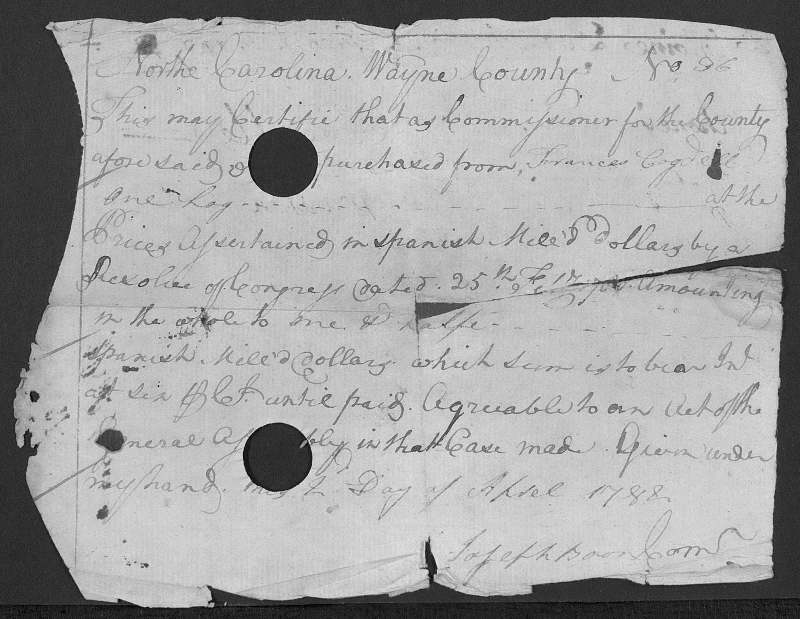 Northe Carolina. Wayne County No 86
This may Certifie that as Commissioner for the County
afore said, purchased from, Frances Cogdell
One Hog at the
Prices Assertained, in spanish Mill'd Dollars by a
Resolve of Congress dated. 25th Amounting
in the whole to one & halfe
spanish Mill'd Dollars which sum is to bear Int
at six Ct. until paid. Agreeable to an Act of the
General Ass bly in that Case made. Given under
my hand, this 2 Day of Aprel 178
Joseph Boon Comr